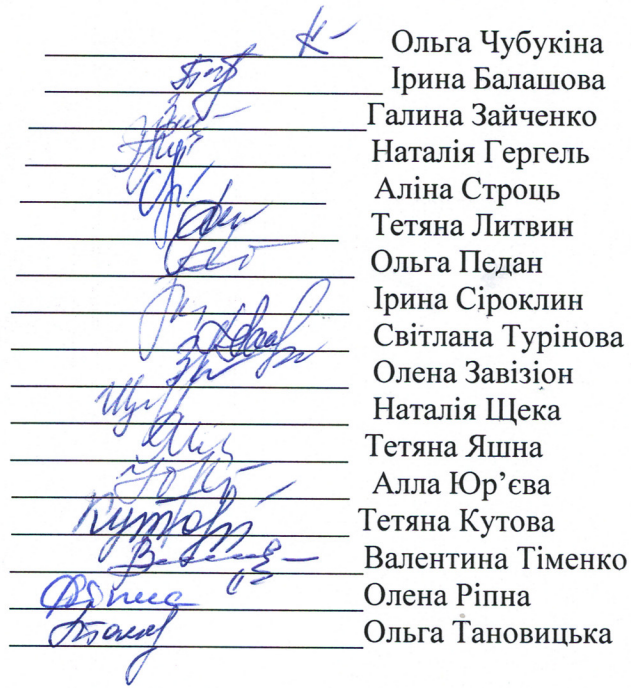 Ольга Чубукіна
Ірина Балашова
Галина Зайченко
Наталія Гергель
Аліна Строць
Тетяна Литвин
Ольга Педан
Ірина Сіроклин
Світлана Турінова
Олена Завізіон
Наталія Щека
Тетяна Яшна
Алла Юр’єва
Тетяна Кутова
Валентина Тіменко
Олена Ріпна
Ольга Тановицька